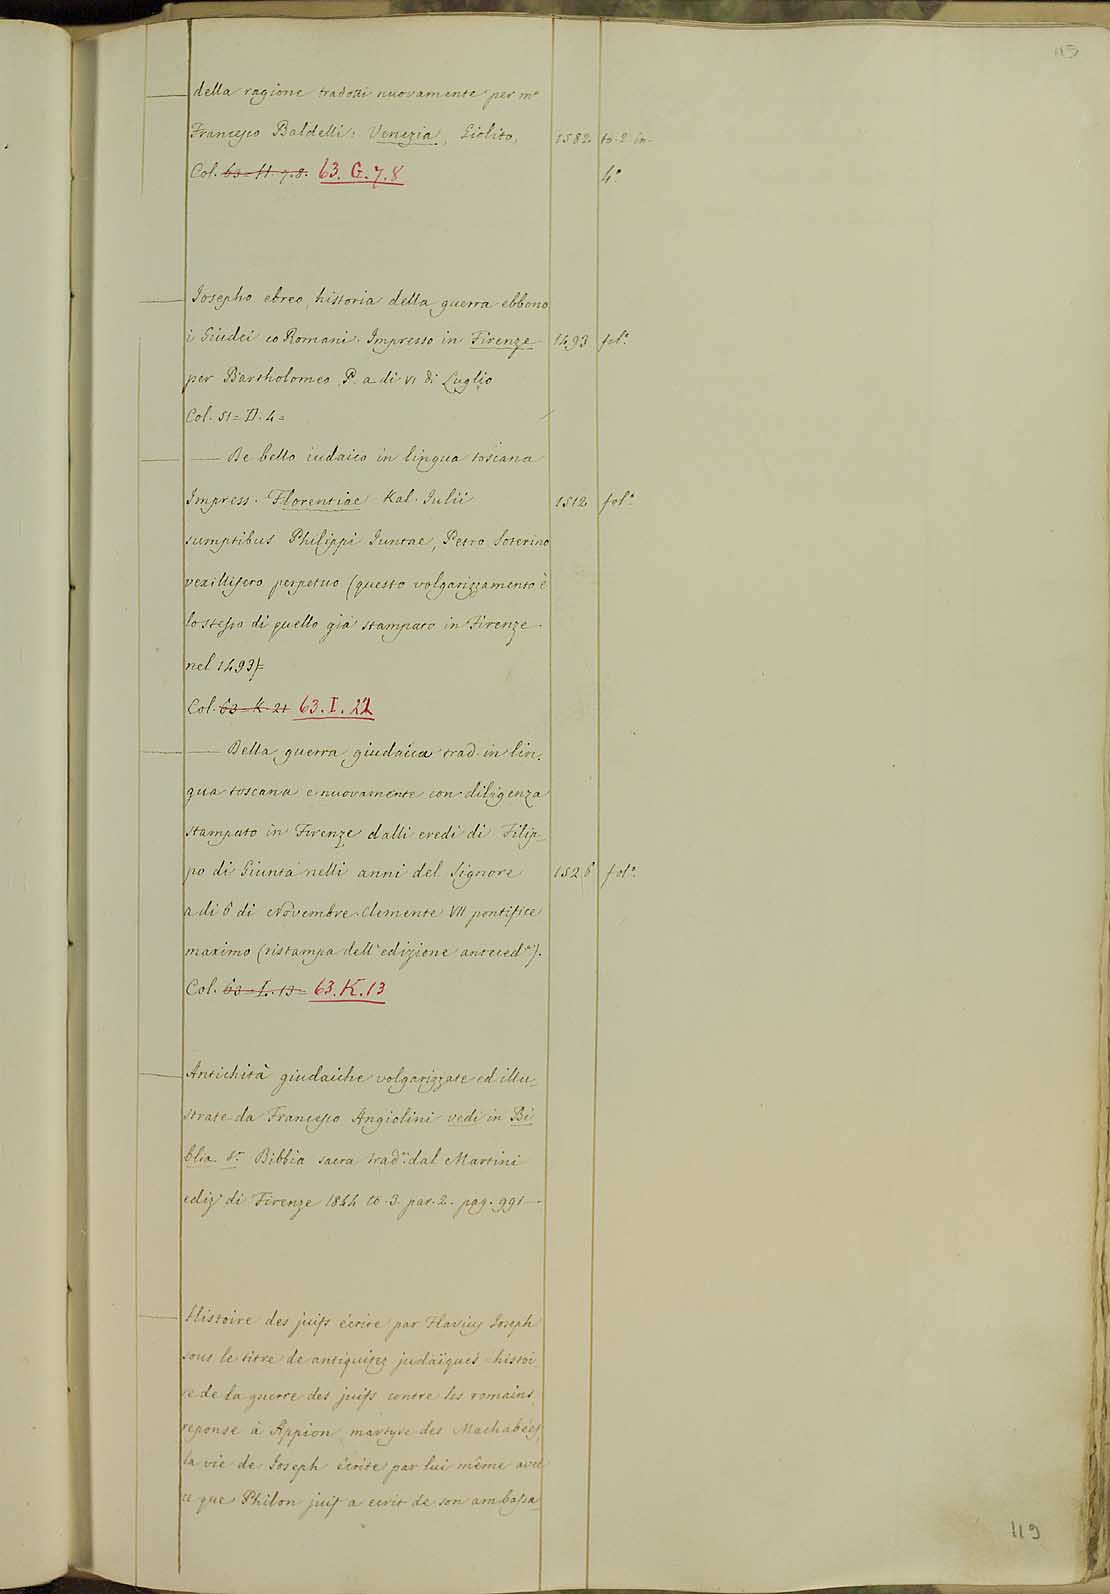 115
della ragione tradotti nuovamente per mº
Francesco Baldelli: Venezia, Giolito, 1582 to. 2 in
Col. 63=H. 7.8. 63. G. 7. 8 4º
Josepho ebreo, historia della guerra ebbono
i Giudei co Romani. Impresso in Firenze 1493 folº
per Bartholomeo P. a di VI di Luglio
Col. 51=D. 4=
— De bello iudaico in lingua tosiana
Impress. Florentiae Kal. Julii 1512 folº
sumptibus Philippi Juntae, Petro Soterino
vexillifero perpetuo (questo volgarizzamento è
lo stesso di quello già stampato in Firenze
nel 1493)=
Col. 63=K. 21 63. I. 22
— Della guerra giudaica trad. in lin-
gua toscana e nuovamente con diligenza
stampato in Firenze dalli eredi di Filip-
po di Giunta nelli anni del Signore 1526 folº
a di 6 di Novembre. Clemente VII pontifice
maximo (ristampa dell'edizione anteced.ª).
Col. 63=I. 13= 63. K. 13
Antichità giudaiche volgarizzate ed illu-
strate da Francesco Angiolini vedi in Bi
blia Sª Bibbia sacra tradª dal Martini
ediz.ª di Firenze 1844 to. 3. par. 2. pag. 991—
Histoire des juifs écrite par Flavius Joseph
sous le titre de antiquitez judaïques histoi-
re de la guerre des juifs contre les romains,
reponse à Appion, martyre des Machabées,
la vie de Joseph écrite par lui même avec
ce que Philon juif a ecrit de son ambassa-
119